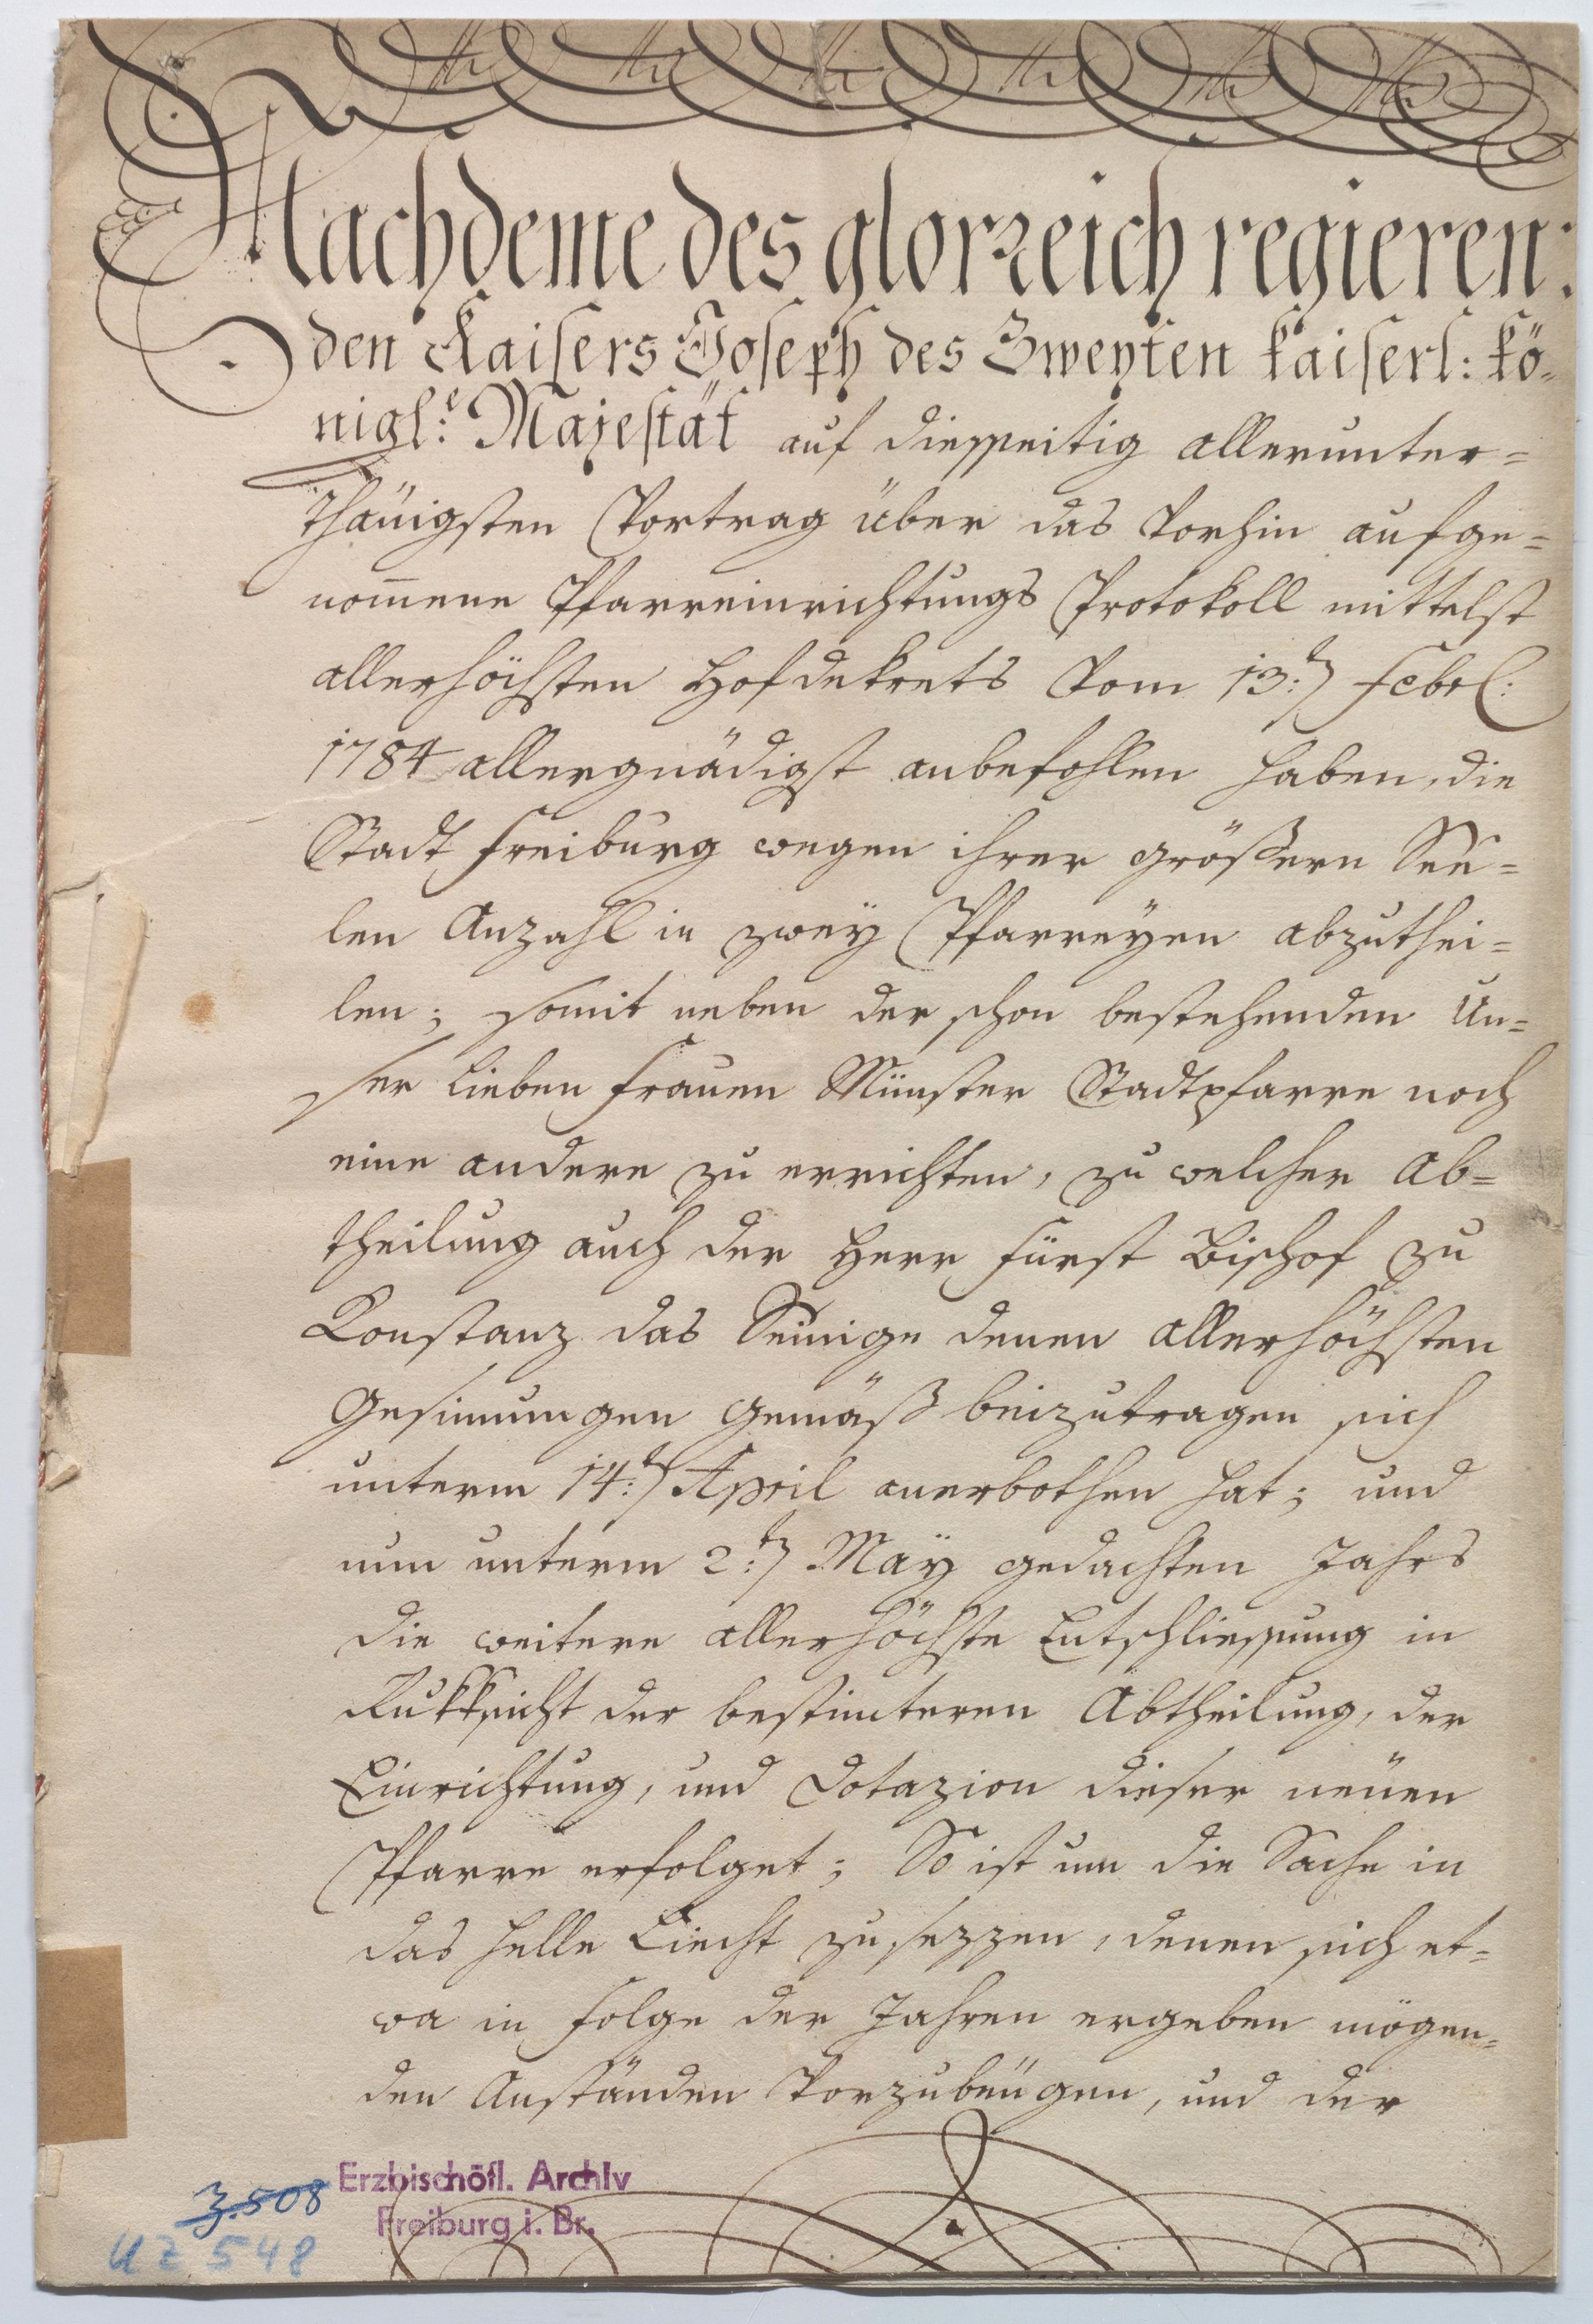 Nachdeme des glorreich regieren:
den Kaisers Joseph des Zweyten kaiserl: kö-
nigl:e Majestät auf diesseitig allerunter=
thänigsten Vortrag über das vorhin aufge=
nom̄ene Pfarreinrichtungs Protokoll mittelst
allerhöchsten Hofdekrets vom 13:ten Febrl:
1784 allergnädigst anbefohlen haben, die
Stadt Freiburg wegen ihrer größern See=
len Anzahl in zwey Pfarreyen abzuthei=
len; somit neben der schon bestehenden Un=
ser Lieben Frauen Münster Stadtpfarre noch
eine andere zu errichten, zu welcher Ab=
theilung auch der Herr Fürst Bischof zu
Konstanz das Seinige denen allerhöchsten
Gesinnungen gemäß beizutragen sich
unterm 14:ten April anerbothen hat; und
nun unterm 2:ten Maÿ gedachten Jahrs
die weitere allerhöchste Entschliessung in
Rukksicht der bestim̄teren Abtheilung, der
Einrichtung, und Dotazion dieser neüen
Pfarre erfolget; So ist um die Sache in
das helle Liecht zu sezzen, denen sich et=
wa in Folge der Jahren ergeben mögen=
den Anständen vorzubeügen, und der
Erzbischöfl. Archiv
Freiburg i. Br.
3.508
UZ 548